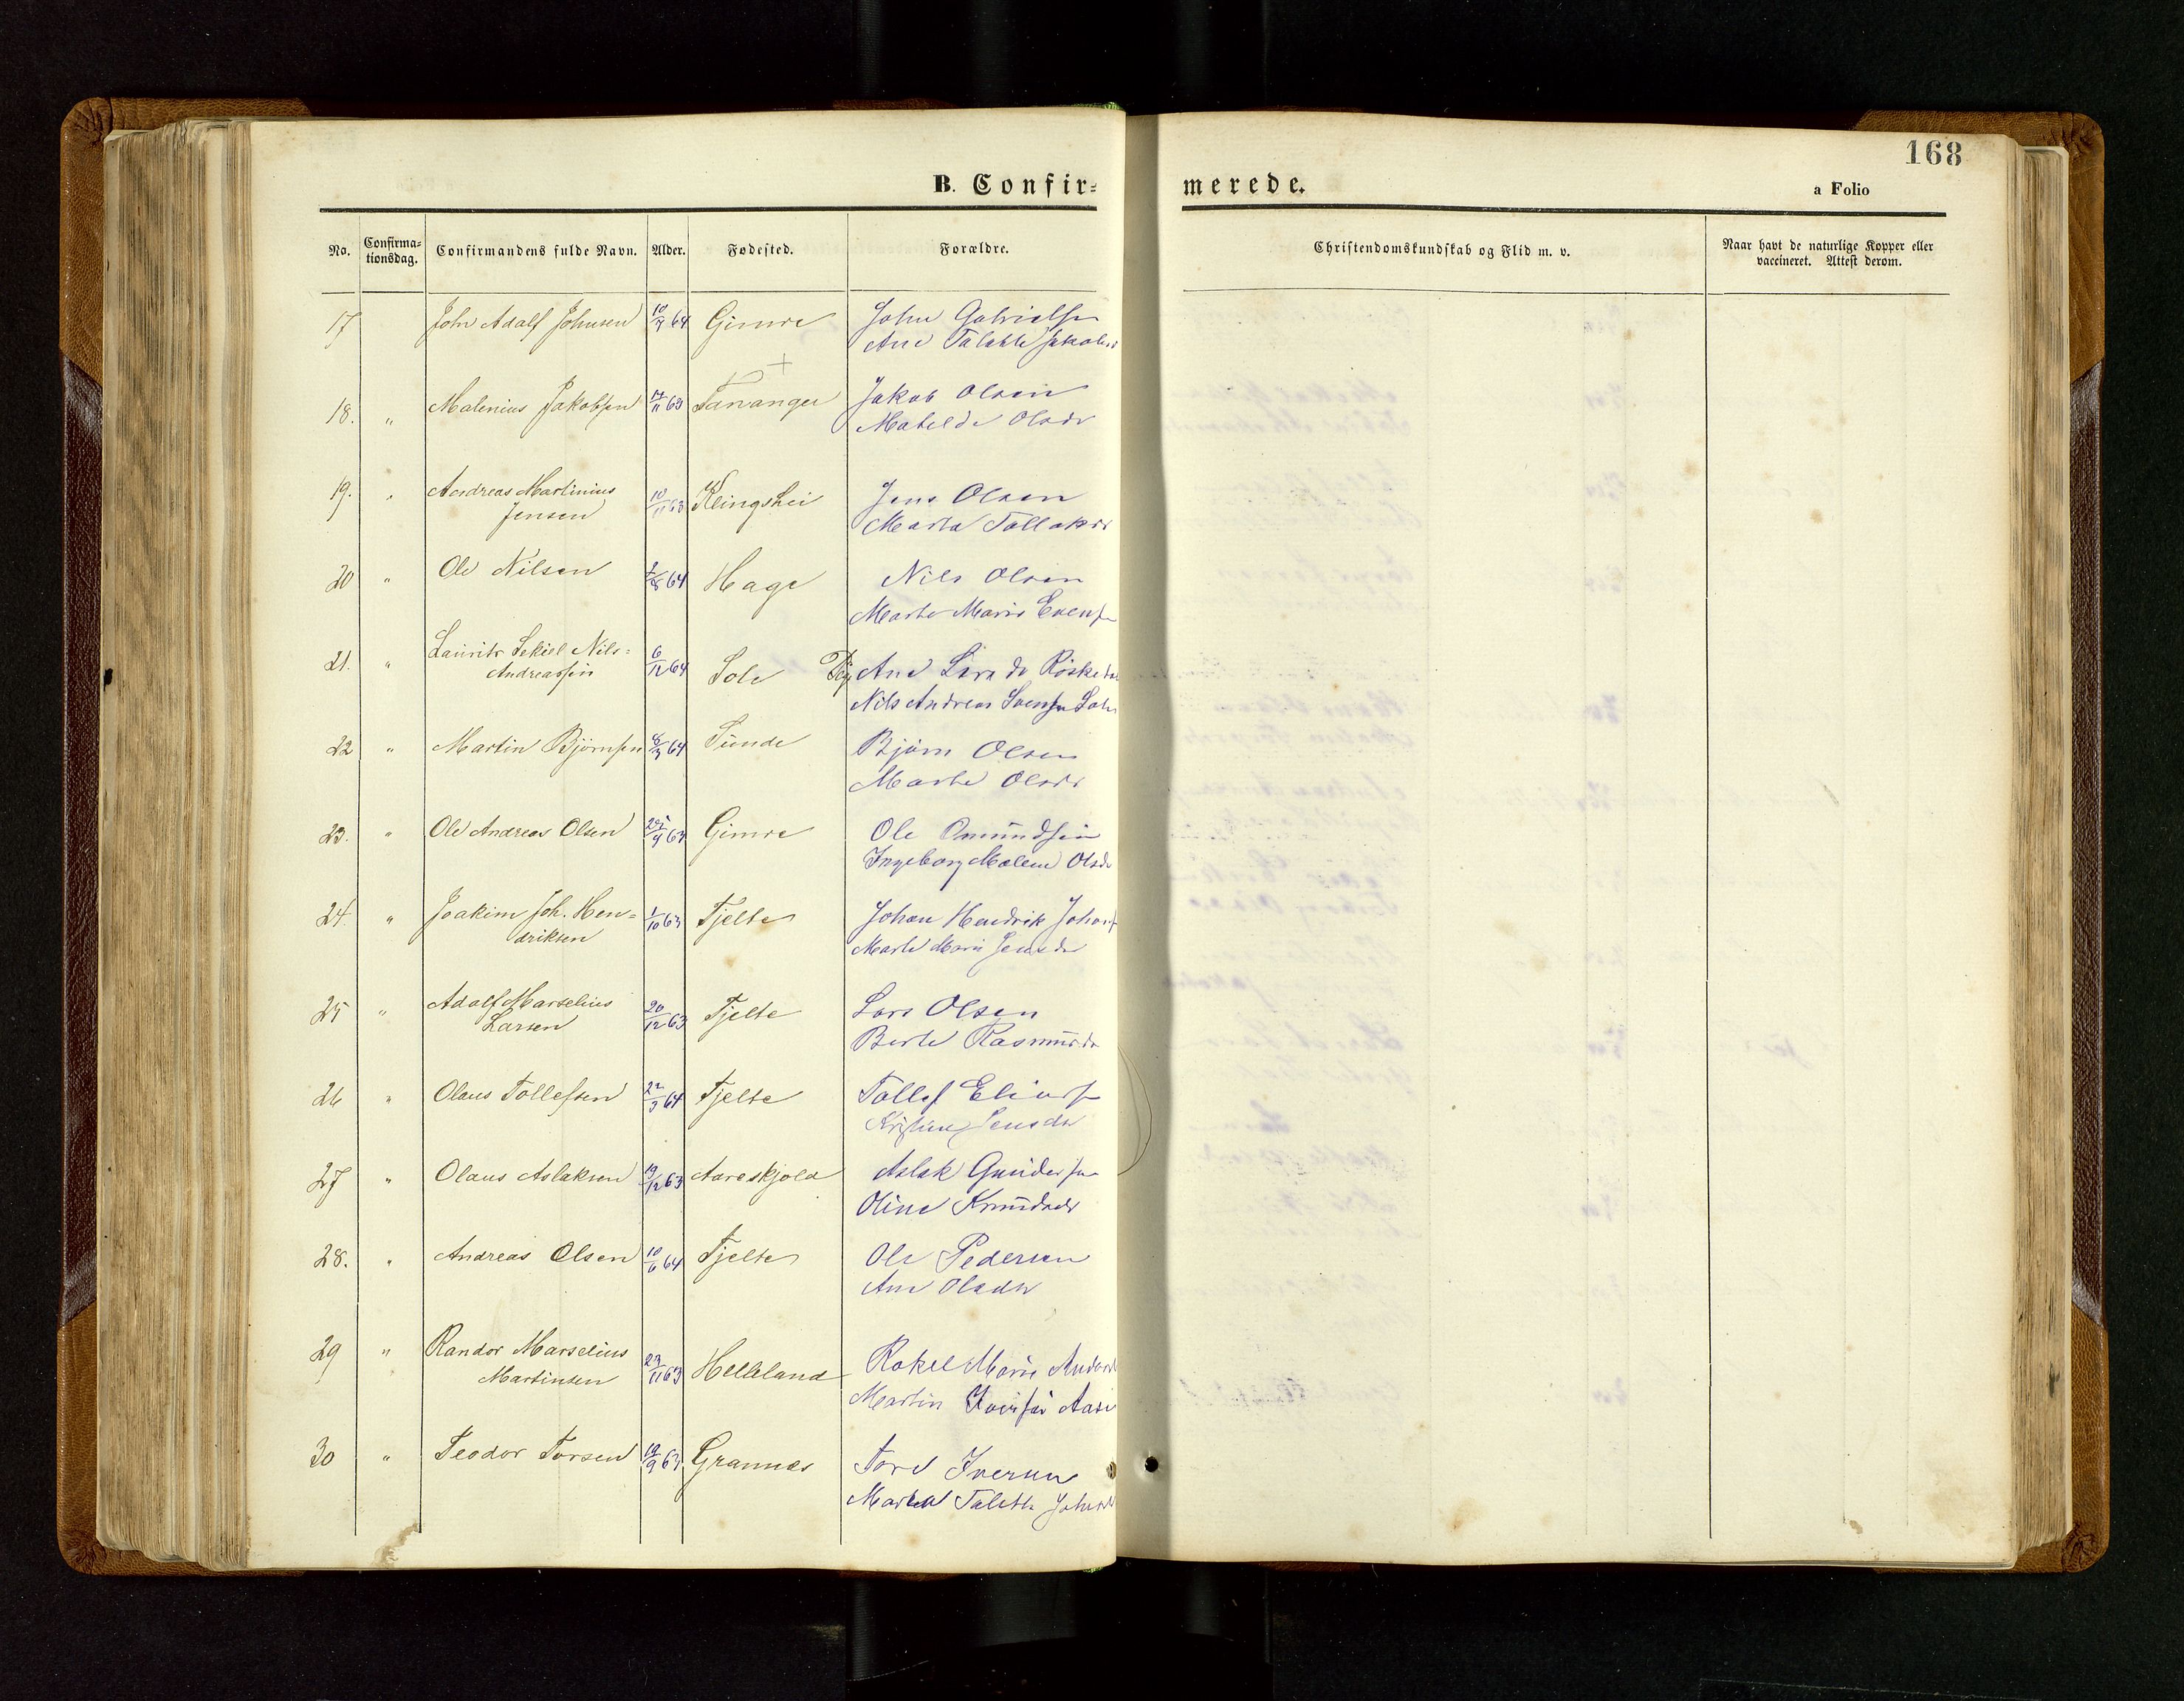 168
B. Confir=
merede.
a Folio
No.
Confirma=
tionsdag.
Confirmandens fulde Navn.
Alder.
Fødested.
Forældre.
Christendomskundskab og Flid m. v.
Naar havt de naturlige Kopper eller
vaccineret. Attest derom.
17 John Adolf Johnsen 64 Gimre John Gabrielsen
Ane Jakobs
18. " Malenius Jakobsen 17/11 63 Tananger Jakob Olsen
Matilde Olsdr
19. " Andreas Martinius 10/11 63 Klingshei Jens Olsen
Jensen Marta Tollaksdr
20 " Ole Nilsen 2/8 64 Hage Nils Olsen
Marte Marie Evens
21. " Laurits Sekiel Nils= 6/12 64 Sole Pig Ane Lisa
Andreassen Nils Andreas Svensen Sole
22 " Martin Bjørnsen 8/3 64 Sunde Bjørn Olsen
Marte Olsdr
23. " Ole Andreas Olsen 25/9 63 Gimre Ole Omundsen
Ingeborg Malene Olsdr
24. " Joakim Joh. Hen= 1/10 63 Tjelte Johan Hendrik Johans
driksen Marte Marie Jensdr
25 " Adolf Marselius 20/12 63 Tjelte Lars Olsen
Larsen Berte Rasmusdr
26 " Olaus Tollefsen 22/3 64 Tjelte Tollef Eliass
Kristine Jensdr
27 " Olaus Aslaksen 19/12 63 Aareskjold Aslak Gundersen
Oline Knudsdr
28. " Andreas Olsen 10/6 64 Tjelte Ole Pedersen
Ane Olsdr
29 " Randor Marselius 23/11 63 Helleland Rakel Marie Andersd
Martinsen Martin Iversen
30 " Teodor Torsen 19/9 63 Grannes Tore Iversen
Marta Talette Johnsd